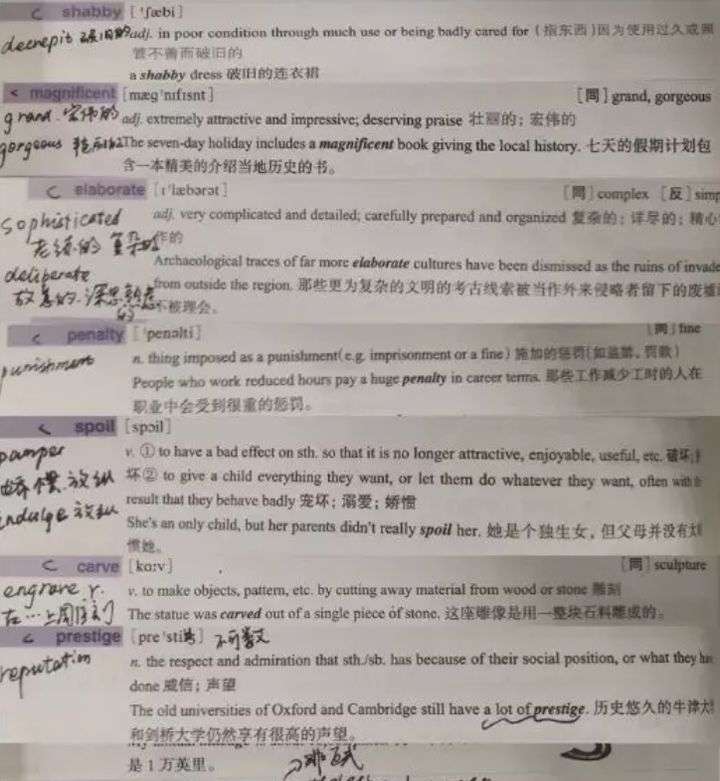 shabby [ˈʃæbi]
decrepit 破旧的 adj. in poor condition through much use or being badly cared for (指东西)因为使用过久或照
管不善而破旧的
a shabby dress 破旧的连衣裙
magnificent [mæɡˈnɪfɪsnt] [同] grand, gorgeous
grand. 宏伟的 adj. extremely attractive and impressive; deserving praise 壮丽的；宏伟的
gorgeous The seven-day holiday includes a magnificent book giving the local history. 七天的假期计划包
含一本精美的介绍当地历史的书。
elaborate [ɪˈlæbərət] [同] complex [反] simp
sophisticated adj. very complicated and detailed; carefully prepared and organized 复杂的；详尽的；精心
老练的 复杂的 作的
Archaeological traces of far more elaborate cultures have been dismissed as the ruins of invade
deliberate
from outside the region. 那些更为复杂的文明的考古线索被当作外来侵略者留下的废墟
故意的. 深思熟虑的 不被理会。
penalty [ˈpenəlti] [同] fine
punishment n. thing imposed as a punishment(e.g. imprisonment or a fine) 施加的惩罚(如监禁、罚款)
People who work reduced hours pay a huge penalty in career terms. 那些工作减少工时的人在
职业中会受到很重的惩罚。
spoil [spɔil]
pamper v. ① to have a bad effect on sth. so that it is no longer attractive, enjoyable, useful, etc. 破坏;
娇惯. 放纵 坏② to give a child everything they want, or let them do whatever they want, often with
indulge 放纵 result that they behave badly 宠坏；溺爱；娇惯
She's an only child, but her parents didn't really spoil her. 她是个独生女，但父母并没有
惯她。
carve [kɑːv] [同] sculpture
engrave v. v. to make objects, pattern, etc. by cutting away material from wood or stone 雕刻
在…上 The statue was carved out of a single piece of stone. 这座雕像是用一整块石料雕成的。
prestige [preˈstiːʒ] 不可数
reputation n. the respect and admiration that sth./sb. has because of their social position, or what they ha
done 威信；声望
The old universities of Oxford and Cambridge still have a lot of prestige. 历史悠久的牛津大
和剑桥大学仍然享有很高的声望。
是1万英里。